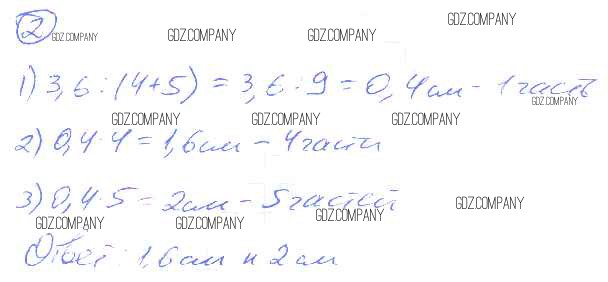 2 GDZ.COMPANY GDZ.COMPANY GDZ.COMPANY GDZ.COMPANY
1) 3,6 : (4+5) = 3,6 : 9 = 0,4 см - 1 часть
GDZ.COMPANY
GDZ.COMPANY GDZ.COMPANY GDZ.COMPANY
2) 0,4 · 4 = 1,6 см - 4 части
3) 0,4 · 5 = 2 см - 5 частей
GDZ.COMPANY GDZ.COMPANY GDZ.COMPANY GDZ.COMPANY
Ответ: 1,6 см и 2 см